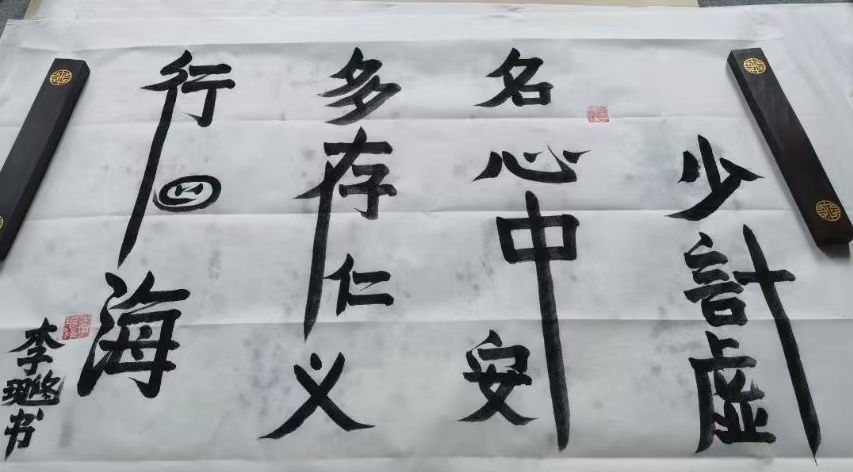 少計虚
名心中安
多存仁义
行四海
李 书